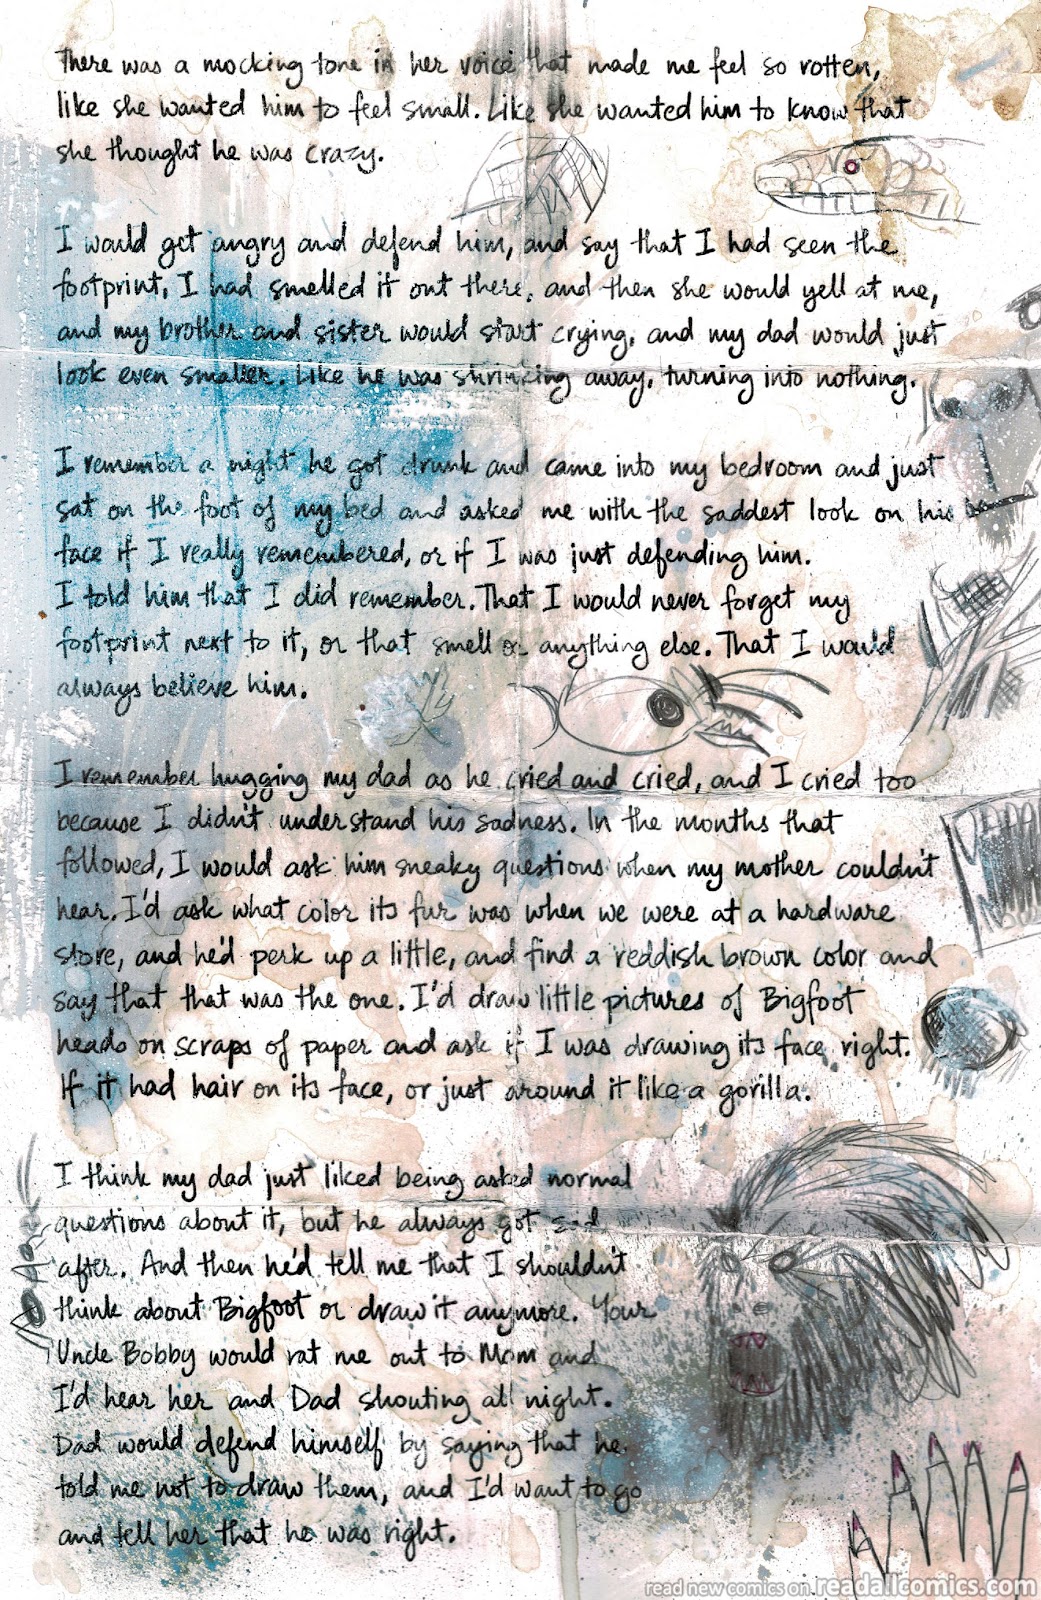 There was a mocking tone in her voice that made me feel so rotten,
like she wanted him to feel small. Like she wanted him to know that
she thought he was crazy.
I would get angry and defend him, and say that I had seen the
footprint, I had smelled it out there, and then she would yell at me,
and my brother and sister would start crying, and my dad would just
look even smaller. Like he was shrinking away, turning into nothing.
I remember a night he got drunk and came into my bedroom and just
sat on the foot of my bed and asked me with the saddest look on his
face if I really remembered, or if I was just defending him.
I told him that I did remember. That I would never forget my
footprint next to it, or that smell or anything else. That I would
always believe him.
I remember hugging my dad as he cried and cried, and I cried too
because I didn't understand his sadness. In the months that
followed, I would ask him sneaky questions when my mother couldn't
hear. I'd ask what color its fur was when we were at a hardware
store, and he'd perk up a little, and find a reddish brown color and
say that that was the one. I'd draw little pictures of Bigfoot
heads on scraps of paper and ask if I was drawing its face right.
If it had hair on its face, or just around it like a gorilla.
I think my dad just liked being asked normal
questions about it, but he always got sad
after. And then he'd tell me that I shouldn't
think about Bigfoot or draw it anymore. Your
Uncle Bobby would rat me out to Mom and
I'd hear her and Dad shouting all night.
Dad would defend himself by saying that he
told me not to draw them, and I'd want to go
and tell her that he was right.
read new comics on readallcomics.com